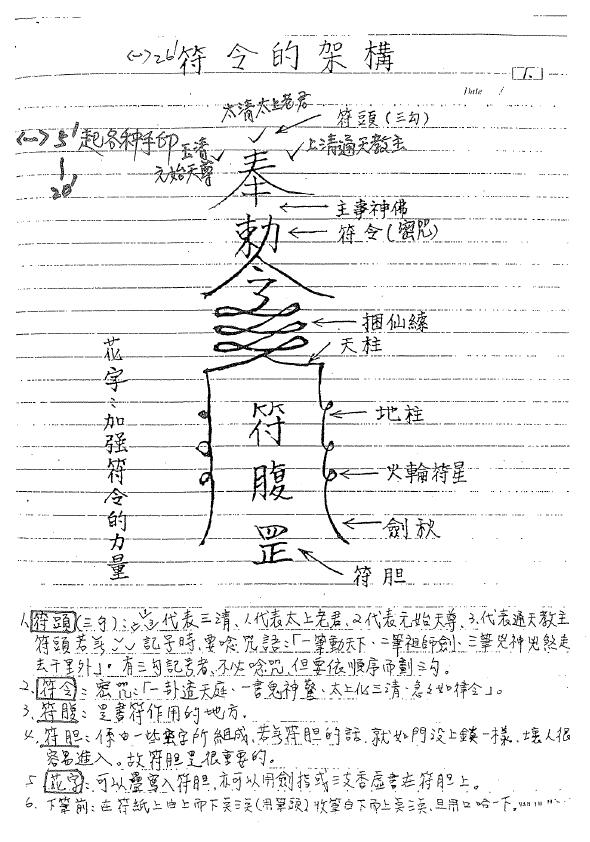 <一>26' 符令的架構
1.
Date /
太清太上老君
符頭(三勾)
<一> 5' 起各种手印
玉清
元始天尊
上清通天教主
20'
奉
主事神佛
勅
符令(密咒)
令
捆仙繩
天柱
花字:加强符令的力量
符
地柱
腹
火輪符星
罡
劍狄
符胆
1. 符頭(三勾):代表三清、1.代表太上老君、2.代表元始天尊、3.代表通天教主
符頭若為 記号時、要唸咒語:「一筆動天下、二筆祖師劍、三筆兇神兇煞走
去千里外」。有三勾記号者、不必唸咒、但要依順序而劃三勾。
2. 符令:密咒:「一卦透天庭、一書鬼神驚、太上化三清、急急如律令」。
3. 符腹:是書符作用的地方.
4. 符胆:係由一些字所組成、若無符胆的話、就如門沒上鎖一樣、壞人很
容易進入。故符胆是很重要的。
5. 花字:可以疊寫入符胆、亦可以用劍指或三支香虛書在符胆上。
6. 下筆前:在符紙上由上而下(用筆頭)收筆由下而上,且用口哈一下。